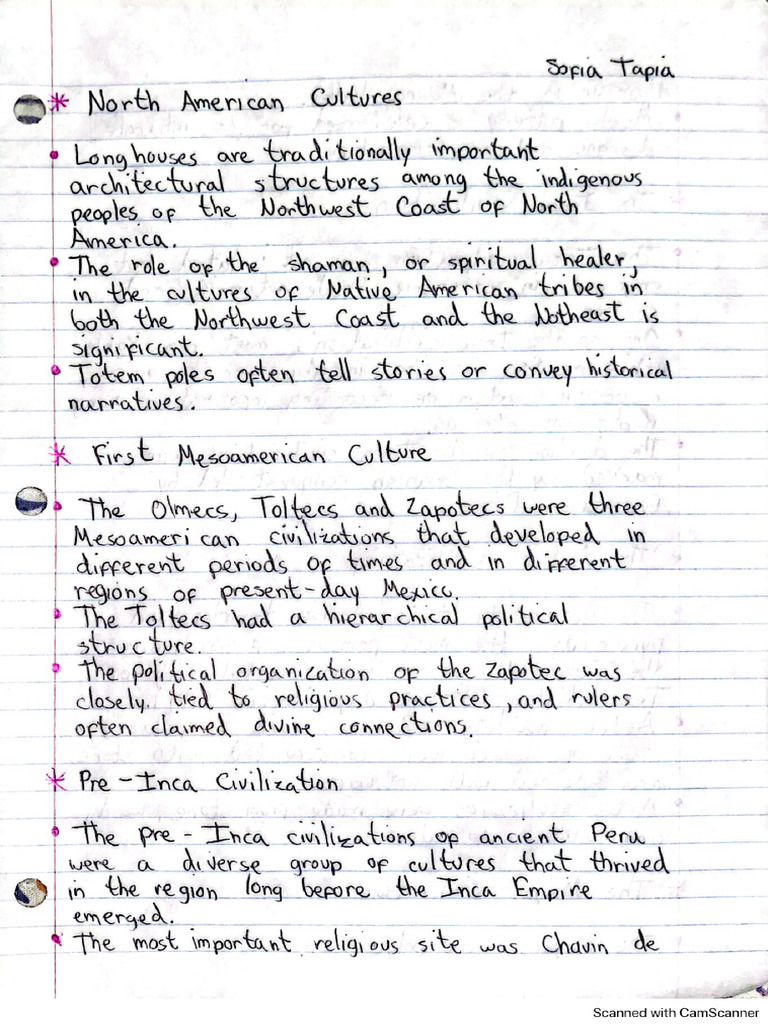 Sofia Tapia
* North American Cultures
• Longhouses are traditionally important
architectural structures among the indigenous
peoples of the Northwest Coast of North
America.
• The role of the shaman, or spiritual healer,
in the cultures of Native American tribes in
both the Northwest Coast and the Notheast is
significant.
• Totem poles often tell stories or convey historical
narratives.
* First Mesoamerican Culture
• The Olmecs, Toltecs and Zapotecs were three
Mesoamerican civilizations that developed in
different periods of times and in different
regions of present-day Mexico.
• The Toltecs had a hierarchical political
structure.
• The political organization of the Zapotec was
closely tied to religious practices, and rulers
often claimed divine connections.
* Pre-Inca Civilization
• The pre-Inca civilizations of ancient Peru
were a diverse group of cultures that thrived
in the region long before the Inca Empire
emerged.
• The most important religious site was Chavin de
Scanned with CamScanner